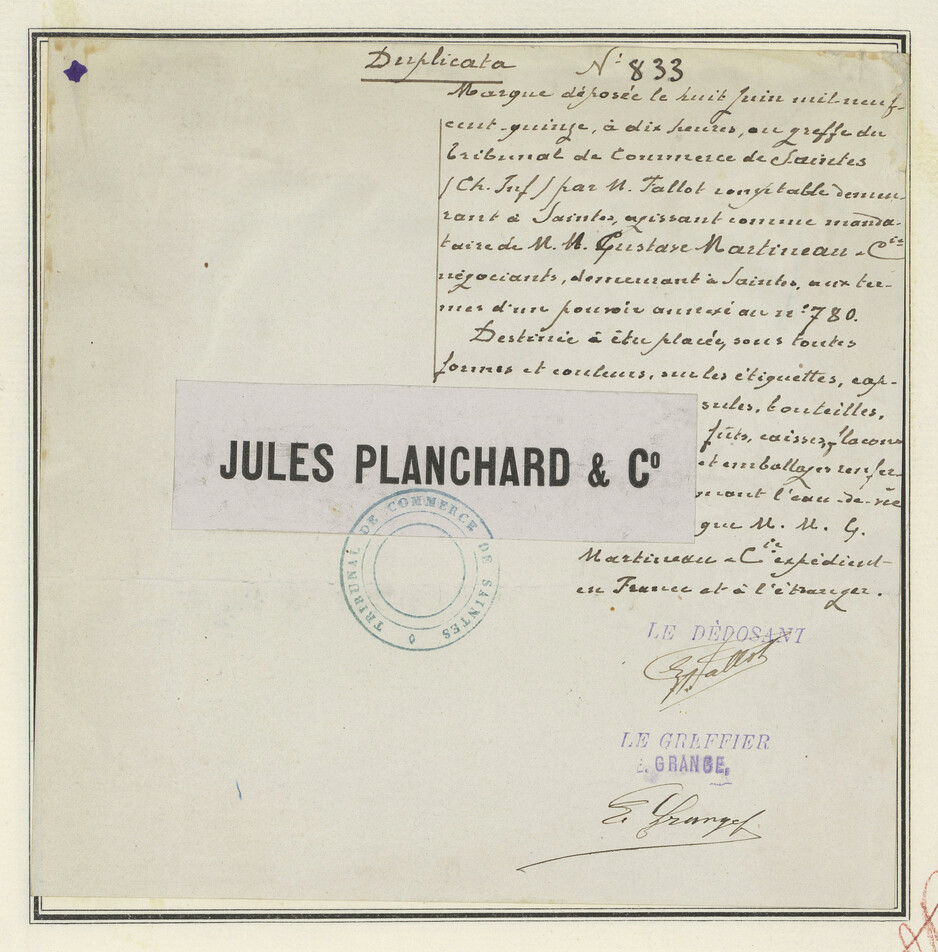 Duplicata N° 833
Marque déposée le huit Juin mil-neuf-
cent-quinze, à dix heures, au greffe du
Tribunal de Commerce de Saintes
(Ch. Inf) par M. Tallot comptable demeu-
rant à Saintes, agissant comme manda-
taire de M. M. Gustave Martineau & Cie
négociants, demeurant à Saintes, aux ter-
mes d'un pouvoir annexé au n° 780.
Destinée à être placée, sous toutes
formes et couleurs, sur les étiquettes, cap-
sules, bouteilles,
fûts, caisses, flacons
et emballages renfer-
mant l'eau-de-vie
que M. M. G.
Martineau & Cie expédient
en France et à l'étranger.
JULES PLANCHARD & Co
TRIBUNAL DE COMMERCE DE SAINTES
LE DÉPOSANT
Tallot
LE GREFFIER
E. GRANGE,
E. Grange